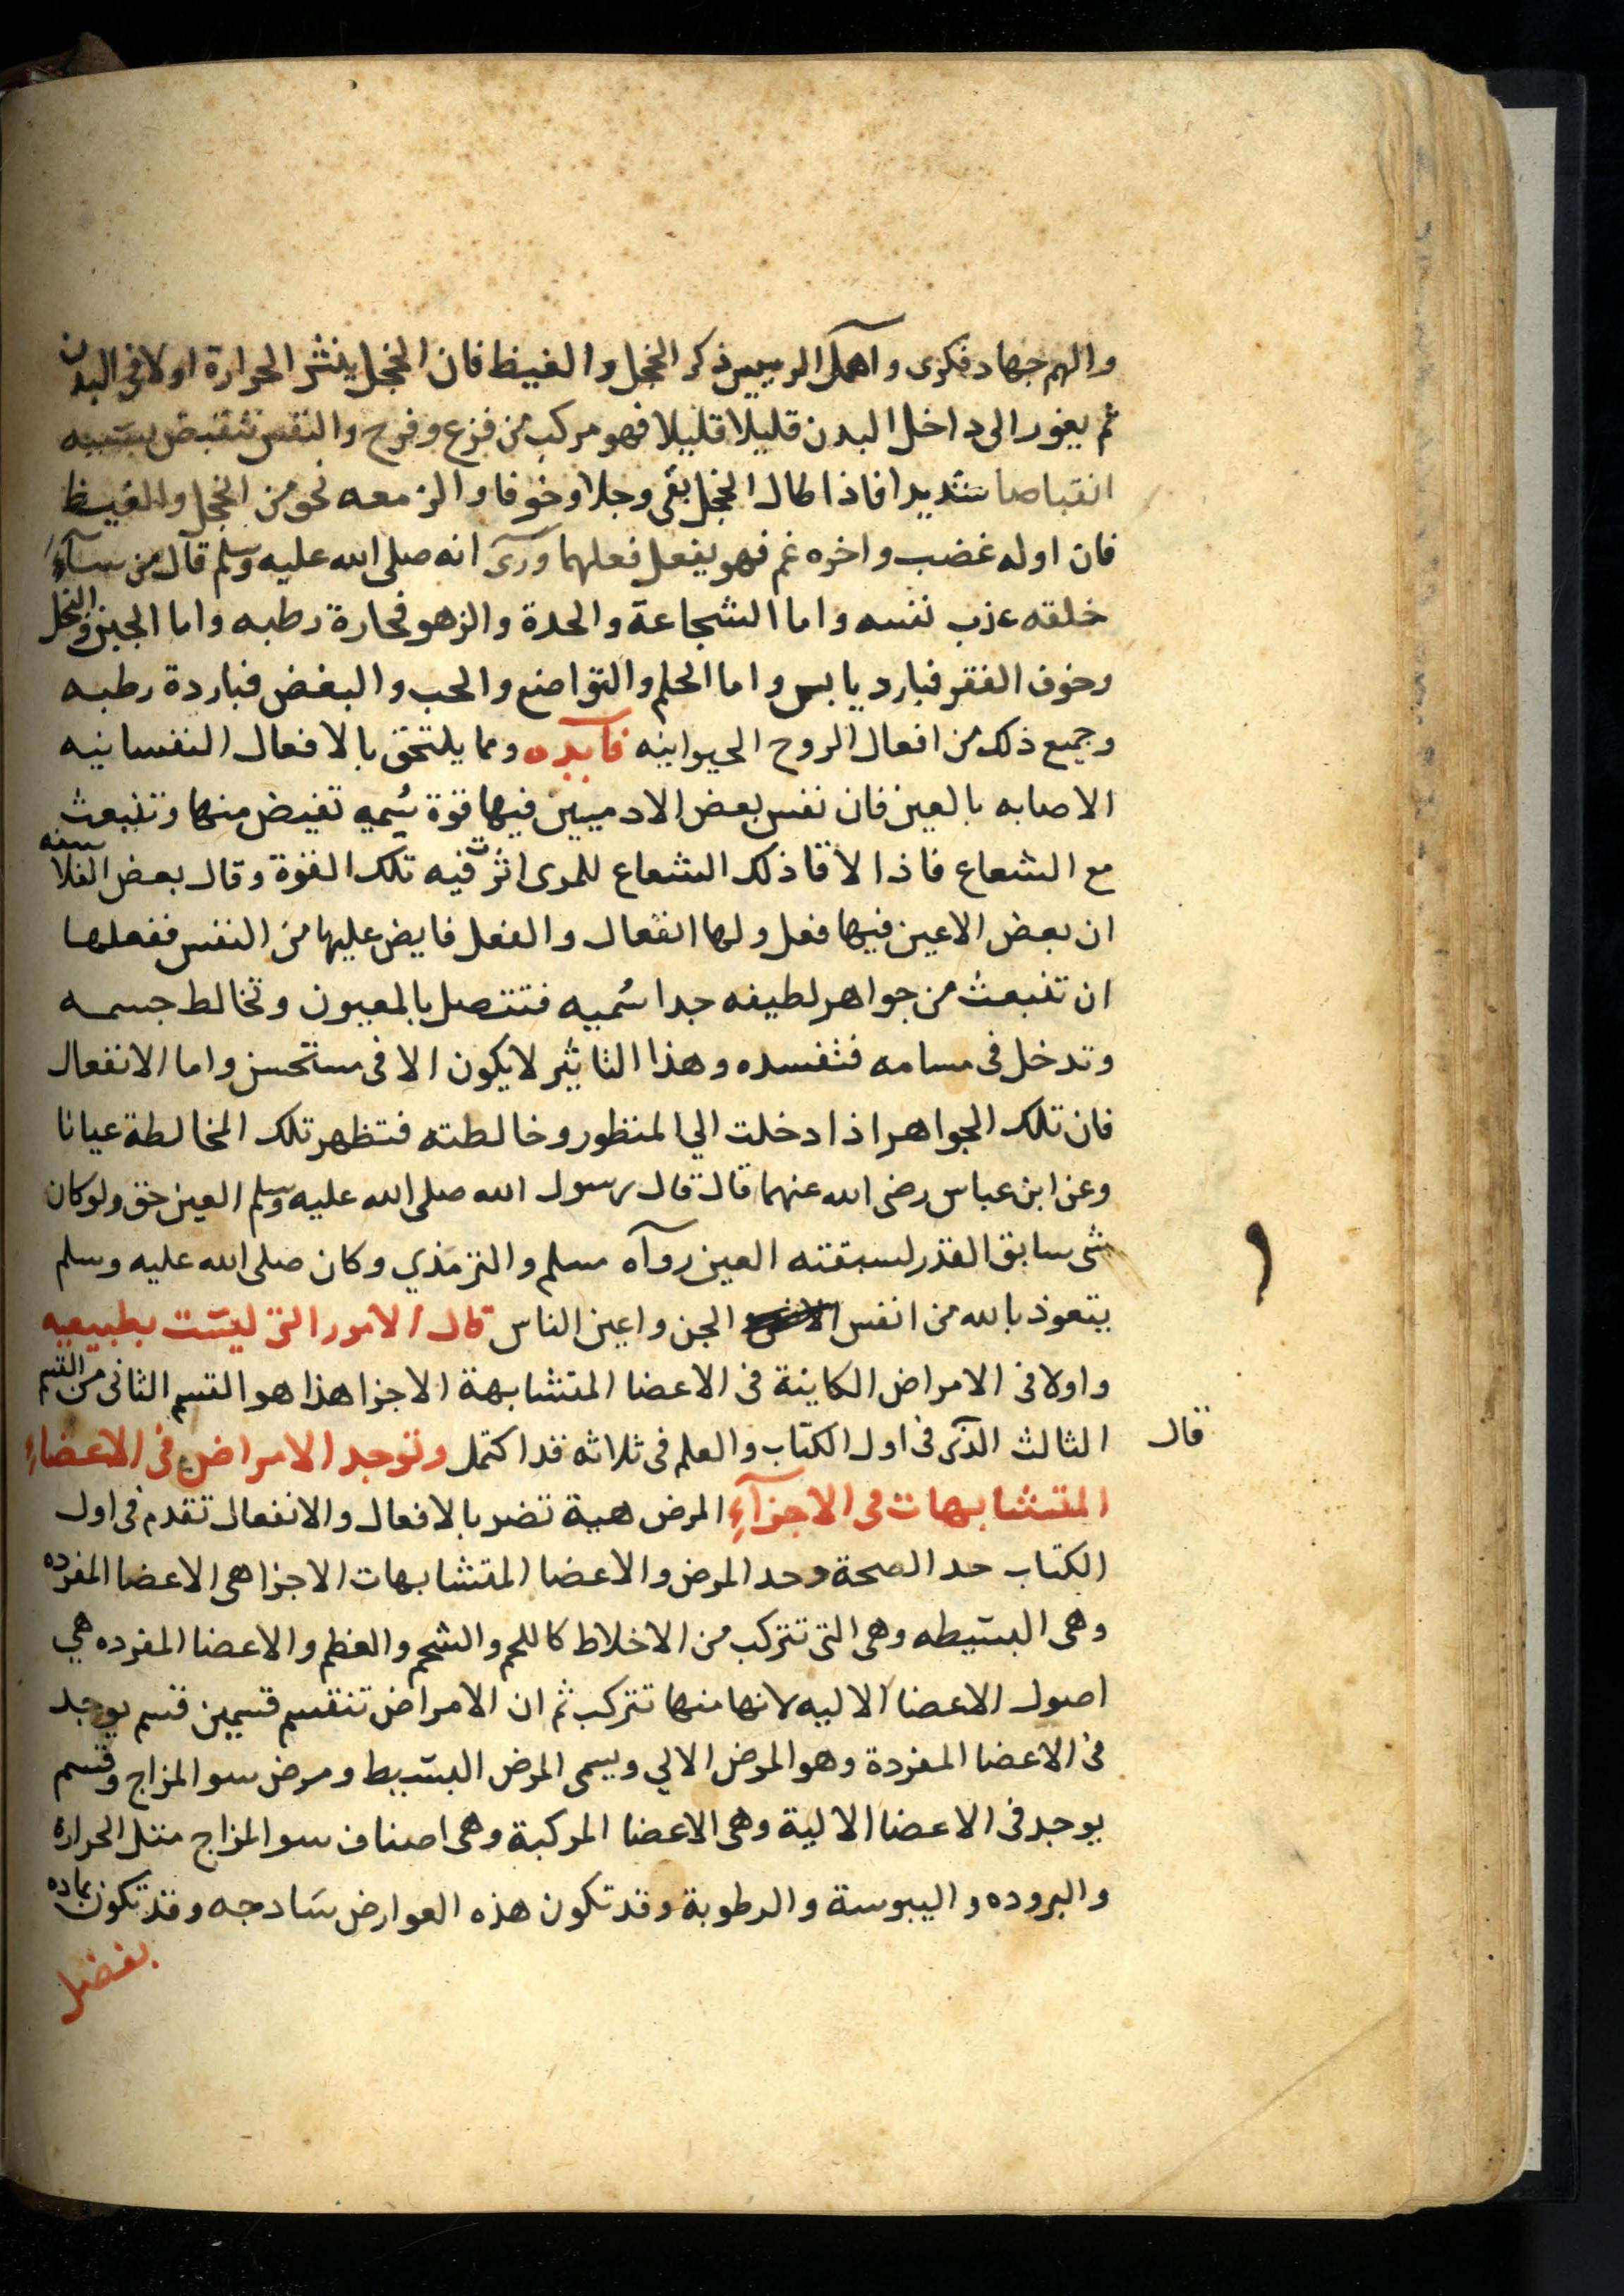 والهم جهاد فكرى واهمل الرييس ذكر الخجل والغيظ فان الخجل ينشر الحرارة اولا فى البدن
ثم يغور الى داخل البدن قليلا قليلا فهو مركب من فزع وفرح والنفس تنقبض بسببه
انقباضا شديدا فاذا طال الخجل بقى وجلا وخوفا والز معه نحو من الخجل والغيظ
فان اوله غضب واخره غم فهو يفعل فعلهما وروى انه صلى الله عليه وسلم قال من ساء
خلقه عذب نفسه واما الشجاعة والحدة والزهو فحارة رطبه واما الجبن والبخل
وخوف الفقر فبارد يابس واما الحلم والتواضع والحب والبغض فباردة رطبه
وجميع ذلك من افعال الروح الحيوانيه فآيده ومما يلتحق بالافعال النفسانيه
الاصابه بالعين فان نفس بعض الادميين فيها قوة سُميه تفيض منها وتنبعث
مع الشعاع فاذا لاقا ذلك الشعاع للمرى اثرت فيه تلك القوة وقال بعض الفلاسفه
ان بعض الاعين فيها فعل ولها انفعال والفعل فايض عليها من النفس ففعلها
ان تنبعث من جواهر لطيفه جدا سُميه فتتصل بالمعيون وتخالط جسمه
وتدخل فى مسامه فتفسده وهذا التاثير لا يكون الا فى مستحسن واما الانفعال
فان تلك الجواهر اذا دخلت الي المنظور وخالطته فتظهر تلك المخالطة عيانا
وعن ابن عباس رضى الله عنهما قال قال رسول الله صلى الله عليه وسلم العين حق ولو كان
شى سابق القدر لسبقته العين رواه مسلم والترمذي وكان صلى الله عليه وسلم
يتعوذ بالله من انفس الجن واعين الناس قال الامور التى ليست بطبيعيه
واولا فى الامراض الكاينة فى الاعضا المتشابهة الاجزا هذا هو القسم الثانى من القسم
قال
الثالث الذى فى اول الكتاب والعلم فى ثلاثه قد اكتمل وتوجد الامراض فى الاعضاء
المتشابهات فى الاجزآءِ المرض هيية تضر بالافعال والانفعال تقدم فى اول
الكتاب حد الصحة وحد المرض والاعضا المتشابهات الاجزا هى الاعضا المفرده
وهى البسيطه وهى التى تتركب من الاخلاط كاللحم والشحم والعظم والاعضا المفرده هي
اصول الاعضا الاليه لانها منها تتركب ثم ان الامراض تنقسم قسمين قسم يوجد
فى الاعضا المفردة وهو المرض الالي ويسمى المرض البسيط ومرض سو المزاج وقسم
يوجد فى الاعضا الالية وهى الاعضا المركبة وهى اصناف سو المزاج مثل الحرارة
والبروده واليبوسة والرطوبة وقد تكون هذه العوارض سَادجه وقد تكون بماده
بفضل